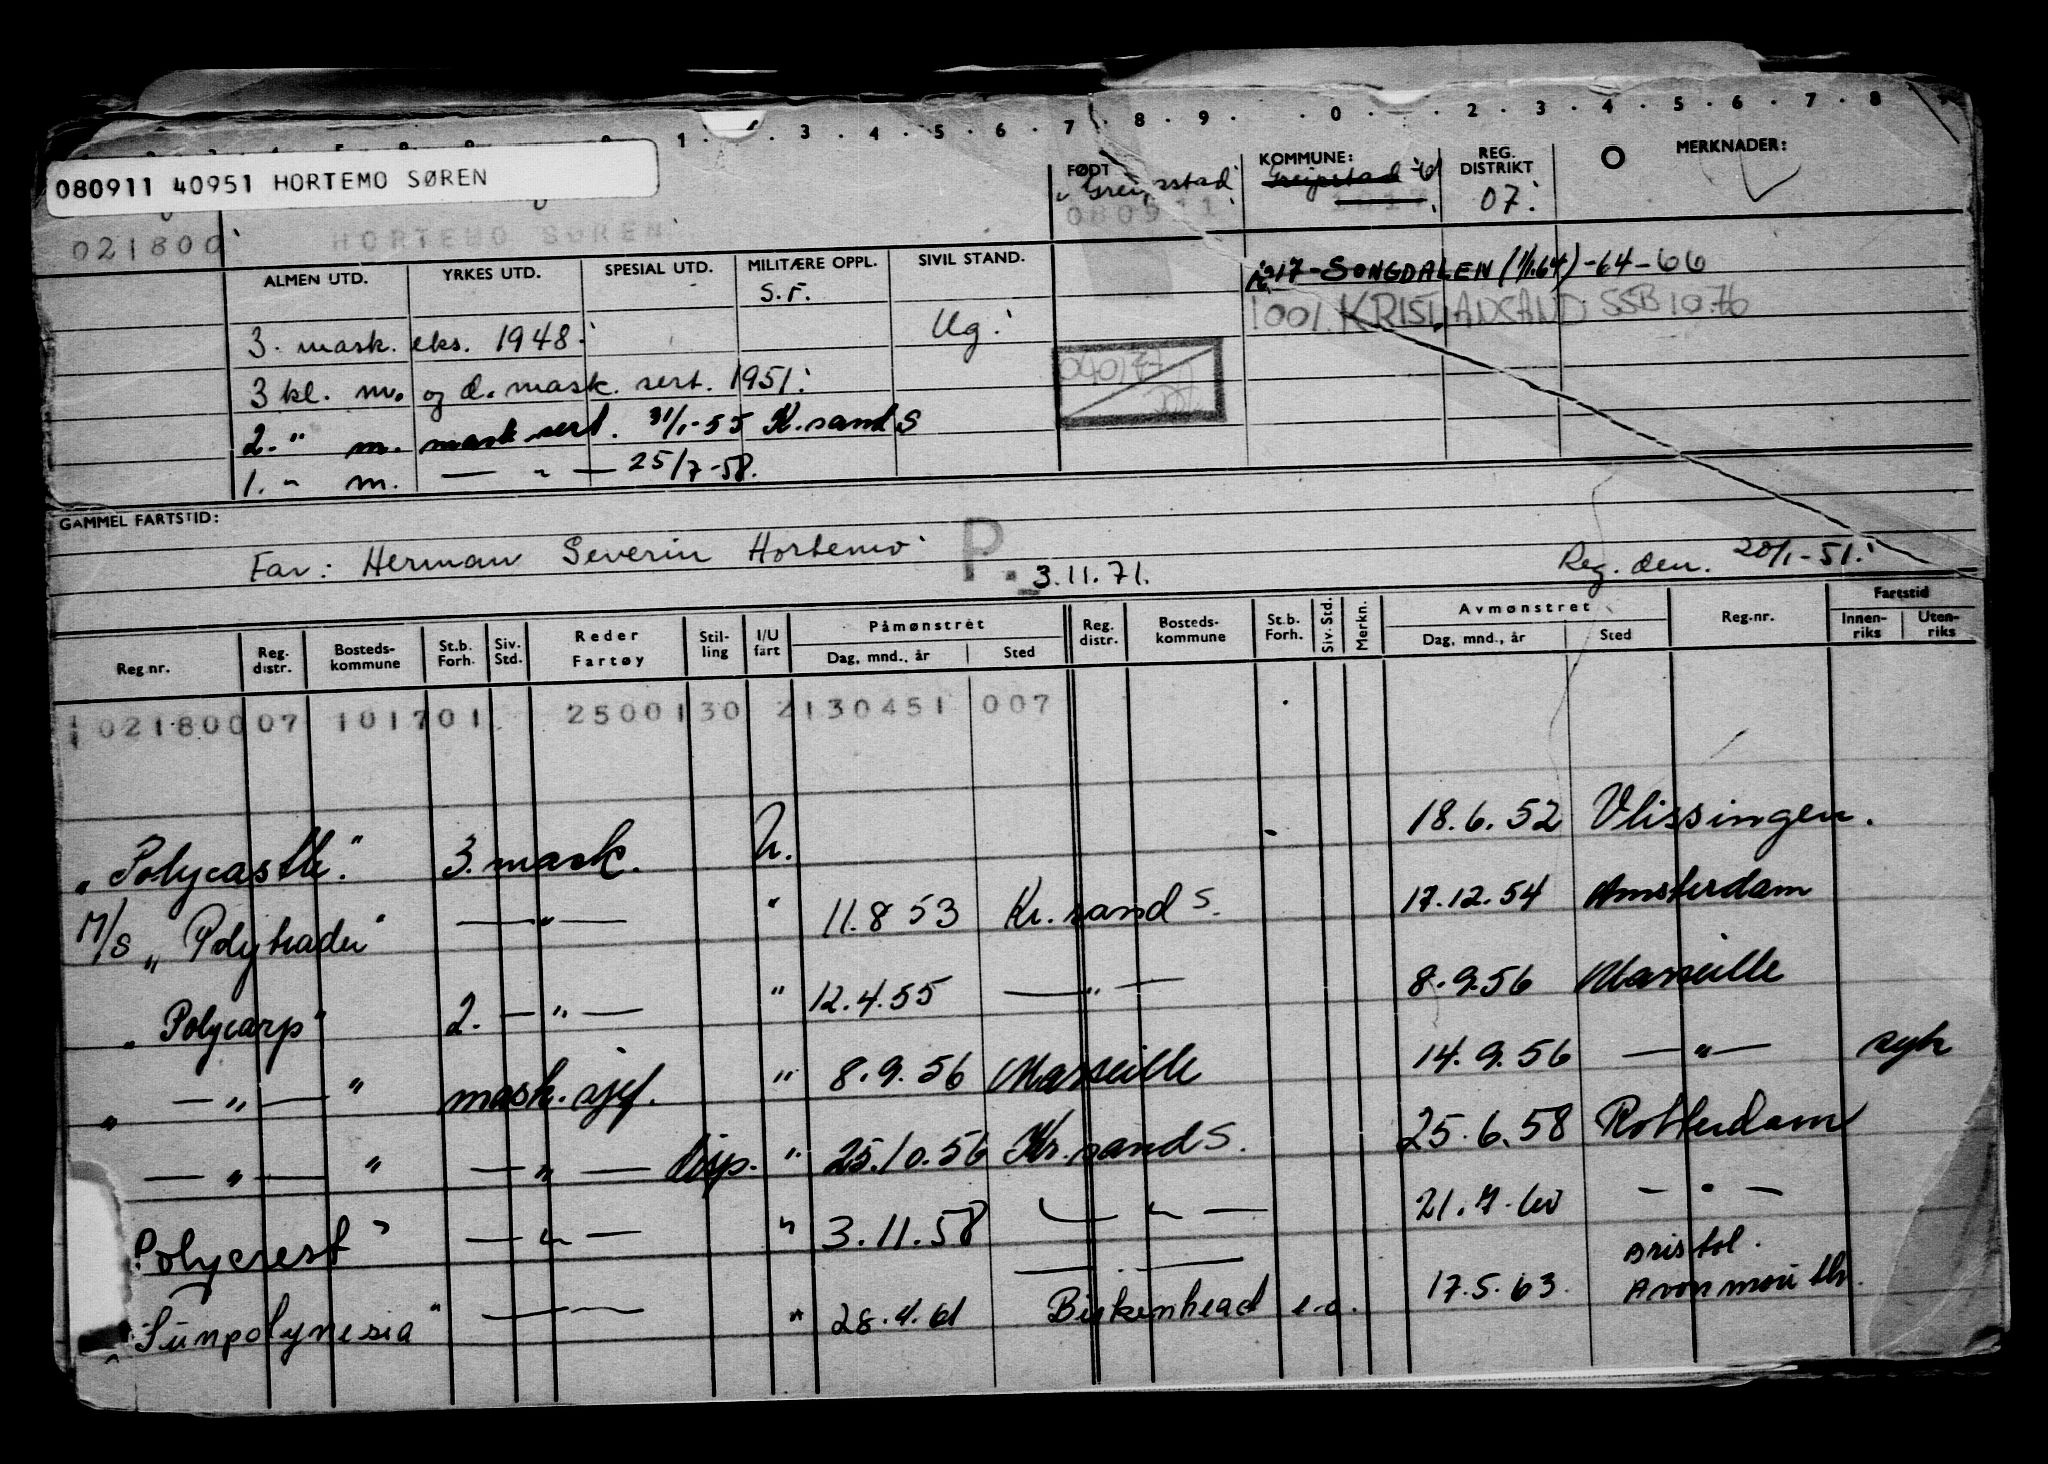 1 . . 3 . 4 . 5 . 6 . 7 . 8 . 9 . . 0 . . 2 . 3 . 4 . 5 . 6 . 7 . 8
080911 40951 HORTEMO SØREN
FØDT KOMMUNE: REG. DISTRIKT MERKNADER:
Greipstad Greipstad
080911 1017 07.
021800 HORTEMO SØREN
ALMEN UTD. YRKES UTD. SPESIAL UTD. MILITÆRE OPPL. SIVIL STAND.
S.F.
1017 - SONGDALEN (1/1.64) -64-66
1001 KRISTIANSAND SSB 10.76
3. mask. eks. 1948. Ug.
3 kl. m. og d. mask. sert. 1951.
2. " m. mask sert. 31/1-55 K.sand S
1. " m. — " — 25/7-58.
GAMMEL FARTSTID:
Far: Herman Severin Hortemo P. 3.11.71. Reg. den. 20/1-51.
Reg.nr. Reg. distr. Bosteds-kommune St.b. Forh. Siv. Std. Reder Fartøy Stil-ling I/U fart Påmønstret Dag, mnd., år Sted Reg. distr. Bosteds-kommune St.b. Forh. Siv. Std. Merkn. Avmønstret Dag, mnd., år Sted Reg.nr. Fartstid Innen-riks Uten-riks
021800 07 1017 01 25001 30 2 130451 007
"Polycastle". 3. mask. U. 18.6.52 Vlissingen.
M/S "Polytrader" — " — " 11.8 53 Kr.sand S. 17.12.54 Amsterdam
"Polycarp" 2. — " — " 12.4.55 — " — 8.9.56 Marseille
" — " — " mask.sjef. " 8.9.56 Marseille 14.9.56 — " — syk
— " — " — " — disp. " 25.10.56 Kr.sand S. 25.6.58 Rotterdam
Polycrest" — " — " 3.11.58 — " — 21.7.60 — " —
"Sunpolynesia" — " — " 28.4.61 Birkenhead e.o. 17.5.63. Bristol. Avonmouth.